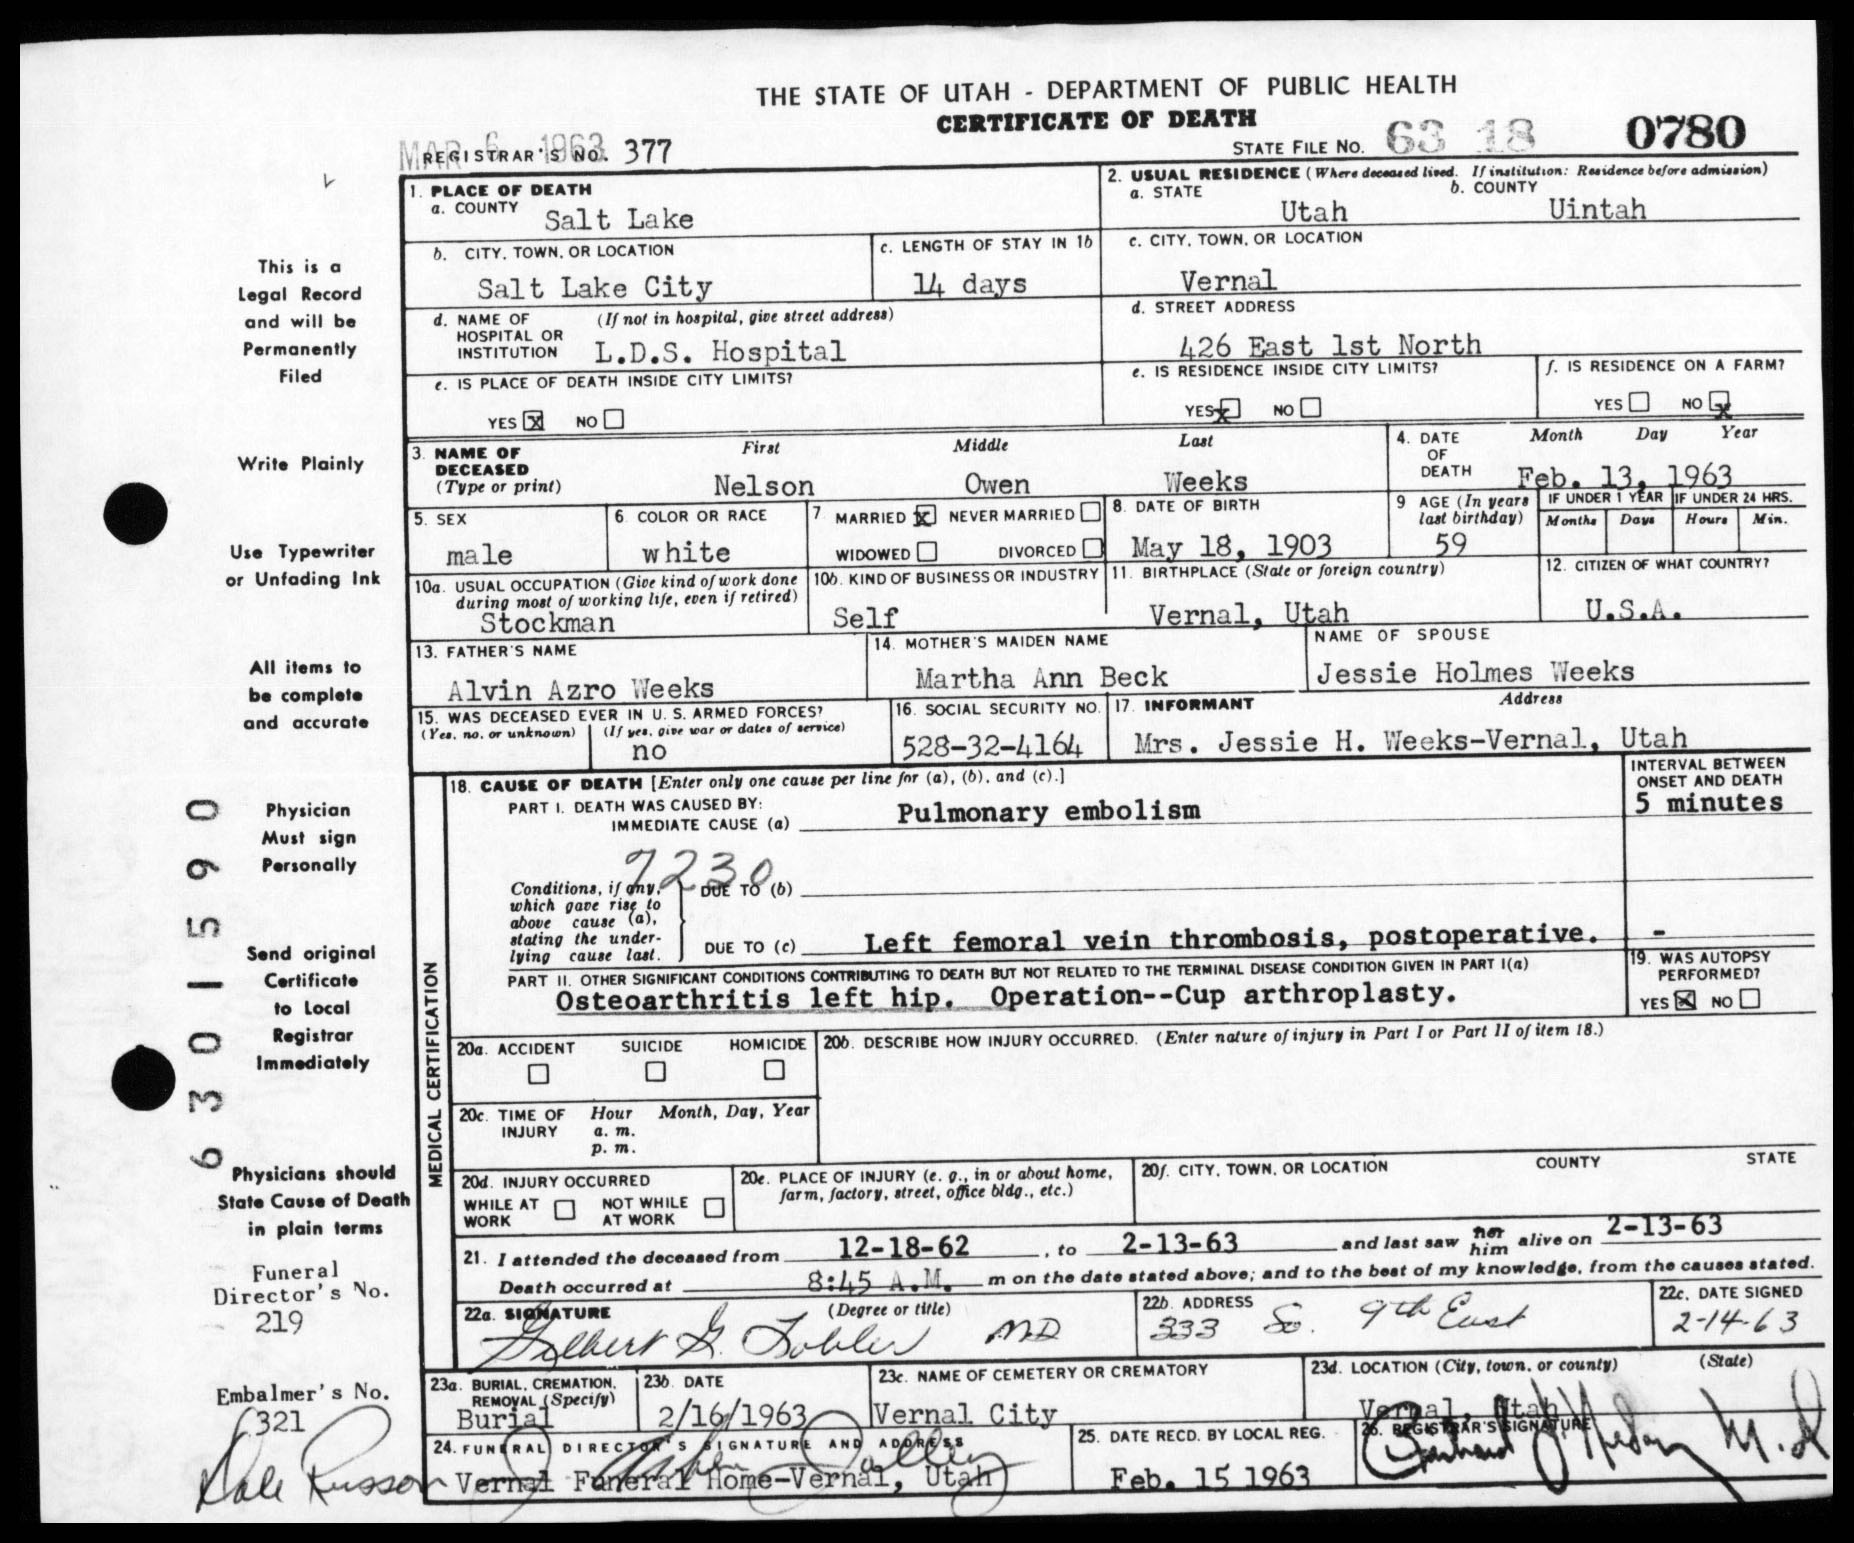 THE STATE OF UTAH - DEPARTMENT OF PUBLIC HEALTH
CERTIFICATE OF DEATH
MAR 6 1963
REGISTRAR'S NO. 377
STATE FILE NO. 63 18 0780
1. PLACE OF DEATH
a. COUNTY Salt Lake
2. USUAL RESIDENCE (Where deceased lived. If institution: Residence before admission)
a. STATE Utah b. COUNTY Uintah
b. CITY, TOWN, OR LOCATION Salt Lake City
c. LENGTH OF STAY IN 1b 14 days
c. CITY, TOWN, OR LOCATION Vernal
d. NAME OF HOSPITAL OR INSTITUTION (If not in hospital, give street address) L.D.S. Hospital
d. STREET ADDRESS 426 East 1st North
e. IS PLACE OF DEATH INSIDE CITY LIMITS?
YES X NO
e. IS RESIDENCE INSIDE CITY LIMITS?
YES X NO
f. IS RESIDENCE ON A FARM?
YES NO X
3. NAME OF DECEASED (Type or print)
First Middle Last
Nelson Owen Weeks
4. DATE OF DEATH Month Day Year
Feb. 13, 1963
5. SEX male
6. COLOR OR RACE white
7. MARRIED X NEVER MARRIED
WIDOWED DIVORCED
8. DATE OF BIRTH May 18, 1903
9 AGE (In years last birthday) 59
IF UNDER 1 YEAR Months Days
IF UNDER 24 HRS. Hours Min.
10a. USUAL OCCUPATION (Give kind of work done during most of working life, even if retired) Stockman
10b. KIND OF BUSINESS OR INDUSTRY Self
11. BIRTHPLACE (State or foreign country) Vernal, Utah
12. CITIZEN OF WHAT COUNTRY? U.S.A.
13. FATHER'S NAME Alvin Azro Weeks
14. MOTHER'S MAIDEN NAME Martha Ann Beck
NAME OF SPOUSE Jessie Holmes Weeks
15. WAS DECEASED EVER IN U. S. ARMED FORCES?
(Yes, no, or unknown) (If yes, give war or dates of service)
no
16. SOCIAL SECURITY NO. 528-32-4164
17. INFORMANT Address
Mrs. Jessie H. Weeks-Vernal, Utah
MEDICAL CERTIFICATION
18. CAUSE OF DEATH [Enter only one cause per line for (a), (b), and (c).]
INTERVAL BETWEEN ONSET AND DEATH
PART I. DEATH WAS CAUSED BY:
IMMEDIATE CAUSE (a) Pulmonary embolism 5 minutes
7230
Conditions, if any, which gave rise to above cause (a), stating the underlying cause last.
DUE TO (b)
DUE TO (c) Left femoral vein thrombosis, postoperative. -
PART II. OTHER SIGNIFICANT CONDITIONS CONTRIBUTING TO DEATH BUT NOT RELATED TO THE TERMINAL DISEASE CONDITION GIVEN IN PART I(a)
Osteoarthritis left hip. Operation--Cup arthroplasty.
19. WAS AUTOPSY PERFORMED?
YES X NO
20a. ACCIDENT SUICIDE HOMICIDE
20b. DESCRIBE HOW INJURY OCCURRED. (Enter nature of injury in Part I or Part II of item 18.)
20c. TIME OF INJURY Hour Month, Day, Year
a. m.
p. m.
20d. INJURY OCCURRED
WHILE AT WORK NOT WHILE AT WORK
20e. PLACE OF INJURY (e. g., in or about home, farm, factory, street, office bldg., etc.)
20f. CITY, TOWN, OR LOCATION COUNTY STATE
21. I attended the deceased from 12-18-62, to 2-13-63 and last saw her him alive on 2-13-63
Death occurred at 8:45 A.M. m on the date stated above; and to the best of my knowledge, from the causes stated.
22a. SIGNATURE (Degree or title)
Gilbert G. Tobler MD
22b. ADDRESS 333 So. 9th East
22c. DATE SIGNED 2-14-63
23a. BURIAL, CREMATION, REMOVAL (Specify) Burial
23b. DATE 2/16/1963
23c. NAME OF CEMETERY OR CREMATORY Vernal City
23d. LOCATION (City, town, or county) (State)
Vernal, Utah
24. FUNERAL DIRECTOR'S SIGNATURE AND ADDRESS
Vernal Funeral Home-Vernal, Utah
25. DATE RECD. BY LOCAL REG. Feb. 15 1963
26. REGISTRAR'S SIGNATURE
M.D
This is a
Legal Record
and will be
Permanently
Filed
Write Plainly
Use Typewriter
or Unfading Ink
All items to
be complete
and accurate
Physician
Must sign
Personally
Send original
Certificate
to Local
Registrar
Immediately
Physicians should
State Cause of Death
in plain terms
Funeral
Director's No.
219
Embalmer's No.
321
Dale Russon
6301590